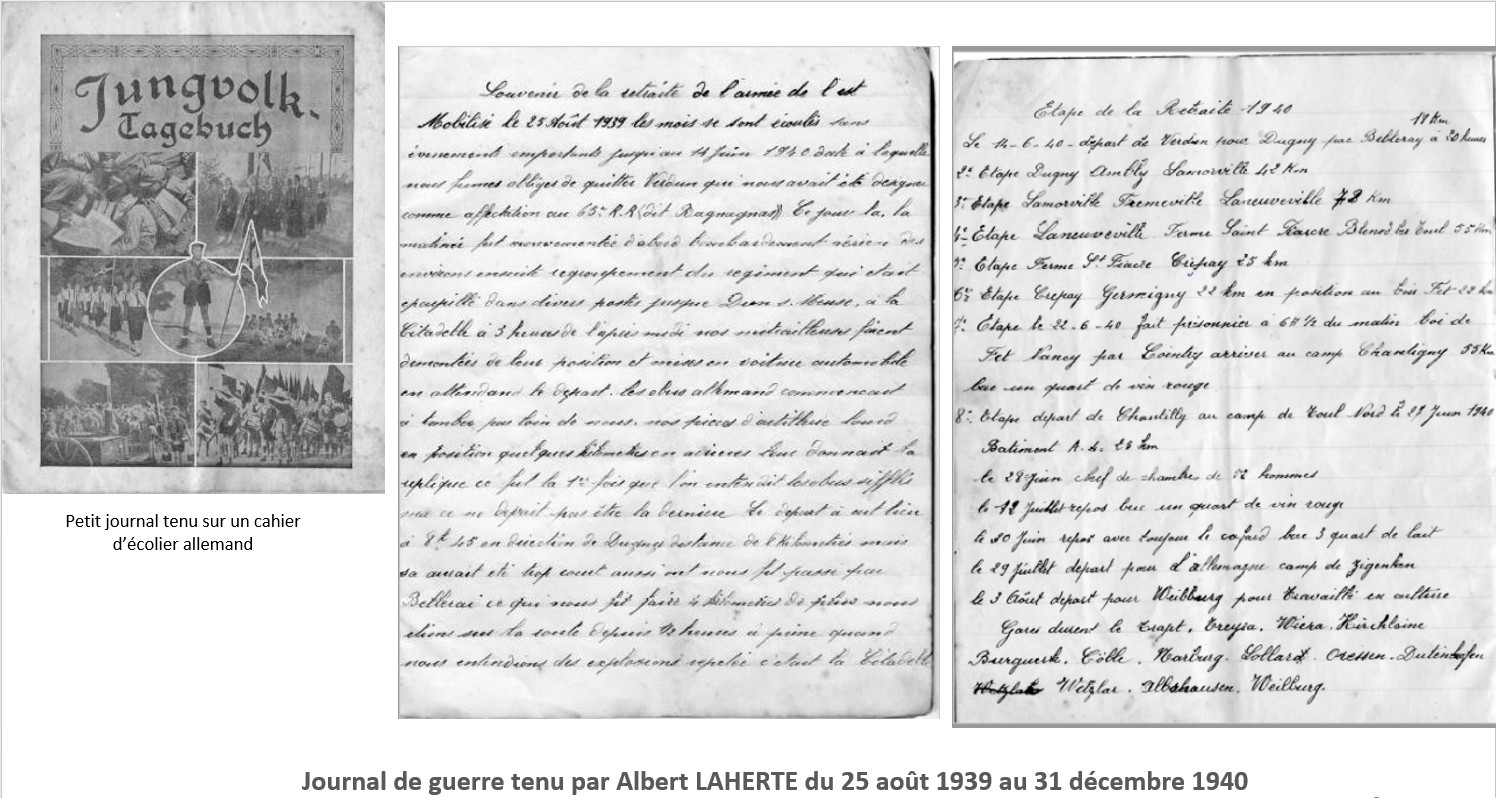 Jungvolk-
Tagebuch
Petit journal tenu sur un cahier
d'écolier allemand
Souvenir de la retraite de l'armée de l'est
Mobilisé le 25 Août 1939 les mois se sont écoulés sans
évenements importants jusqu'au 14 Juin 1940 date à laquelle
nous fumes obligés de quitter Verdun qui nous avait été designer
comme affectition au 65e R.R (dit Ragnagnas) Ce jour la, la
matinée fut mouvementée d'abord bombardement aérien des
environs ensuite regroupement du regiment qui etait
eparpillé dans divers postes jusque Dun s. Meuse, à la
Citadelle à 3 heures de l'après midi nos mitrailleuses furent
demontées de leur position et mises en voiture automobile
en attendant le depart. les obus allemand commencait
à tomber pas loin de nous. nos pieces d'artillerie lourd
en position quelques kilometres en arrieres leur donnait la
replique ce fut la 1re fois que l'on entendit les obus siffles
ma ce ne devait pas être la derniere. Le depart à eut lieu
à 8h 45 en direction de Dugny distance de kilometres mais
sa aurait été trop court aussi ont nous fit passé par
Bellerai ce qui nous fit faire 4 kilometres de plus nous
etions sur la route depuis 1/2 heures à peine quand
nous entendions des explosions repetée c'etait la Citadelle
Etape de la Retraite 1940
11 Km
Le 14-6-40 - depart de Verdun pour Dugny par Belleray à 20 heures
2e Etape Dugny Ambly Lamorville 42 Km
3e Etape Lamorville Fremeville Laneuveville 78 Km
4e Etape Laneuveville Ferme Saint Fiacre Blenod les Toul 55 Km
5e Etape Ferme St Fiacre Crepay 25 km
6e Etape Crepay Germigny 22 km en position au Bois Fet 22 km
7e Etape le 22-6-40 fait prisonnier à 6H 1/2 du matin boi de
Fet Nancy par arriver au camp Chantigny 55 Km
bue un quart de vin rouge
8e Etape depart de Chantilly au camp de Toul Nord le 27 Juin 1940
Batiment A. 4. 25 km
le 28 Juin chef de chambre de 52 hommes
le 12 Juillet repos bue un quart de vin rouge
le 30 Juin repos avec toujour le cafard bue 3 quart de lait
le 29 Juillet depart pour l'allemagne camp de Zigenhen
le 3 Août depart pour Weilburg pour travaillé en culture
Gares durent le trapt. Treysa. Wiera. Kirchhaine
Cölbe. Marburg. Lollar. Duten
Wetzlar. Albshausen. Weilburg.
Journal de guerre tenu par Albert LAHERTE du 25 août 1939 au 31 décembre 1940